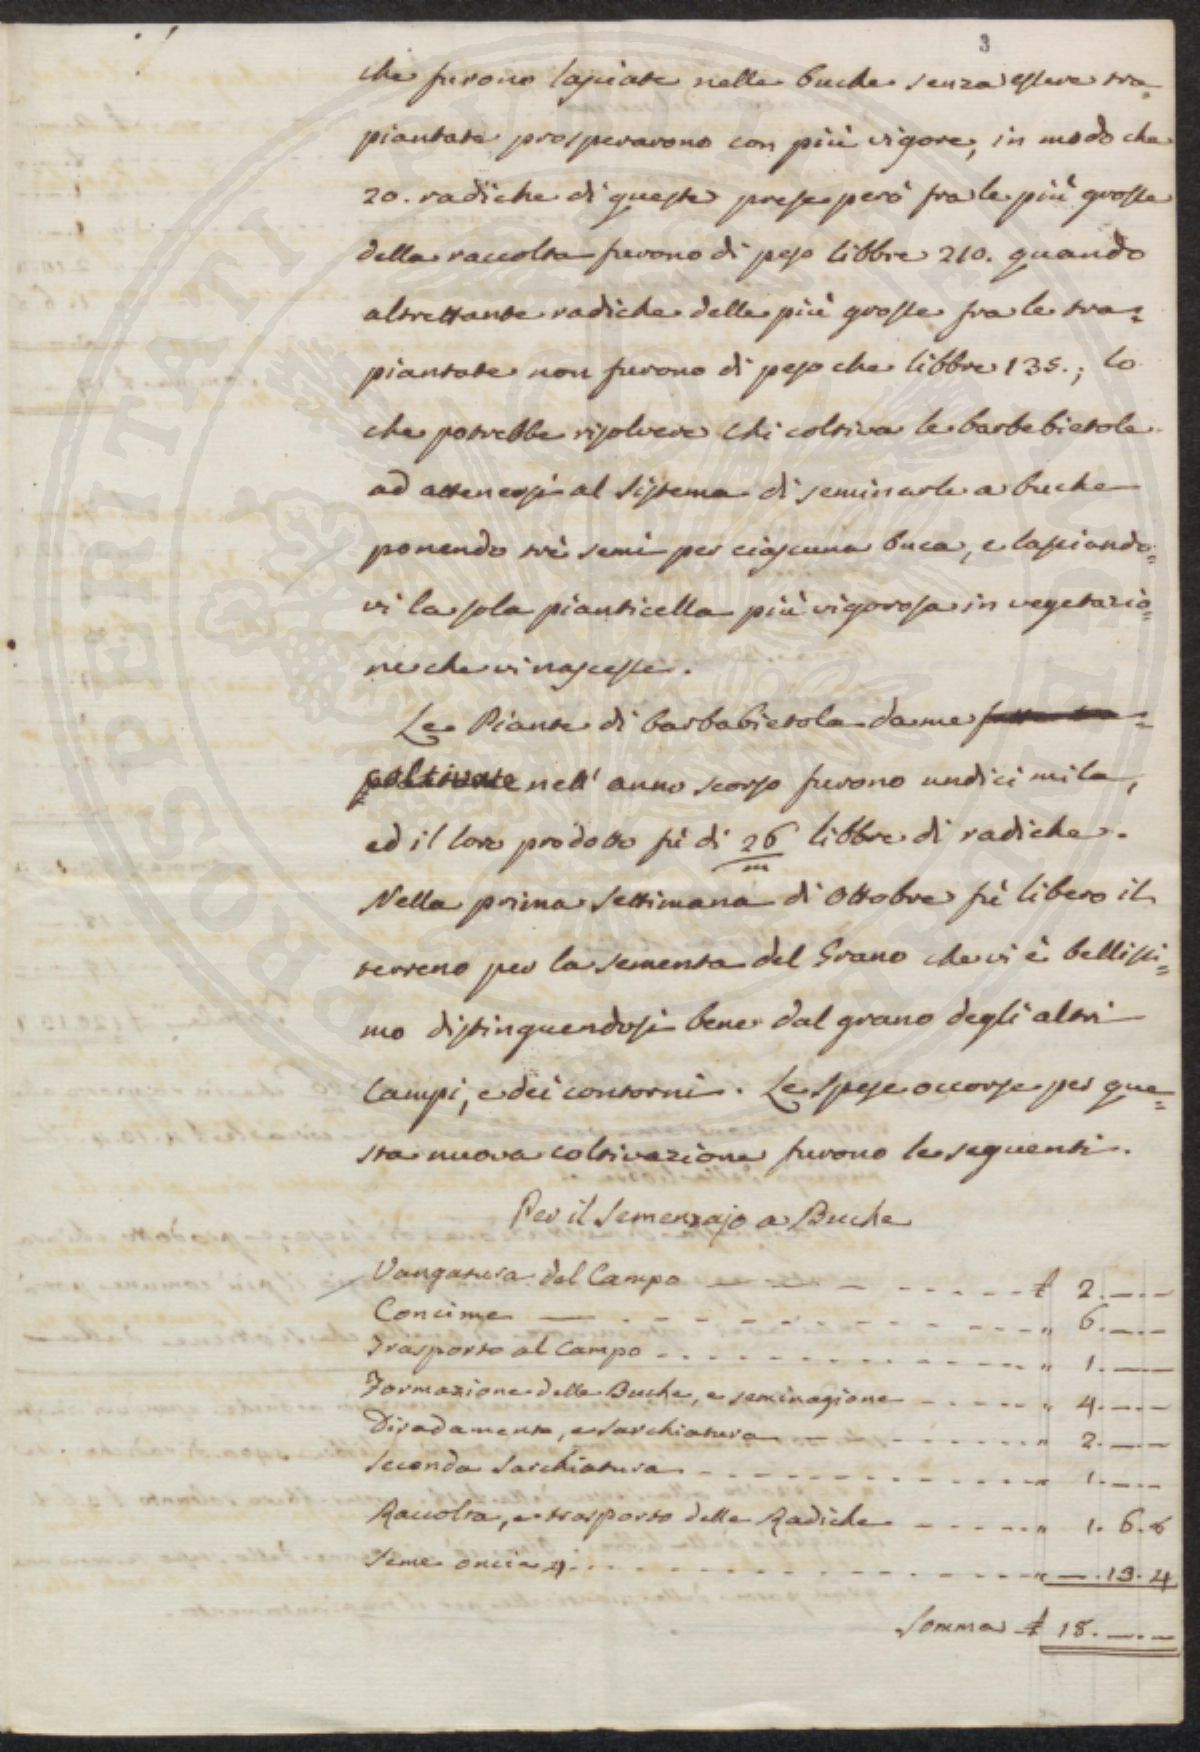 3
che furono lasciate nelle buche senza essere tra=
piantate prosperarono con più vigore, in modo che
20. radiche di queste prese però fra le più grosse
della raccolta furono di peso libbre 210. quando
altrettante radiche delle più grosse fra le tra=
piantate non furono di peso che libbre 135.; lo
che potrebbe risolvere chi coltiva le barbebietole
ad attenersi al sistema di seminarle a buche
ponendo trè semi per ciascuna buca, e lasciando=
vi la sola pianticella più vigorosa in vegetazio=
ne che vi nascesse.
Le Piante di barbabietola da me
coltivate nell' anno scorso furono undici mila,
ed il loro prodotto fù di 26/m libbre di radiche.
Nella prima settimana di Ottobre fù libero il
terreno per la sementa del Grano che vi è bellissi=
mo distinguendosi bene dal grano degli altri
Campi, e dei contorni. Le spese occorse per que=
sta nuova coltivazione furono le seguenti.
Per il Semenzajo a Buche
Vangatura del Campo £ 2. — —
Concime " 6. — —
Trasporto al Campo " 1. — —
Formazione delle Buche, e seminagione " 4. — —
Diradamento, e sarchiatura " 2. — —
Seconda sarchiatura " 1. — —
Raccolta, e trasporto delle Radiche " 1. 6. 8
Seme oncia 4. " — . 13. 4
Somma £ 18. — —
PROSPERITATI PUBLICAE AUGENDAE